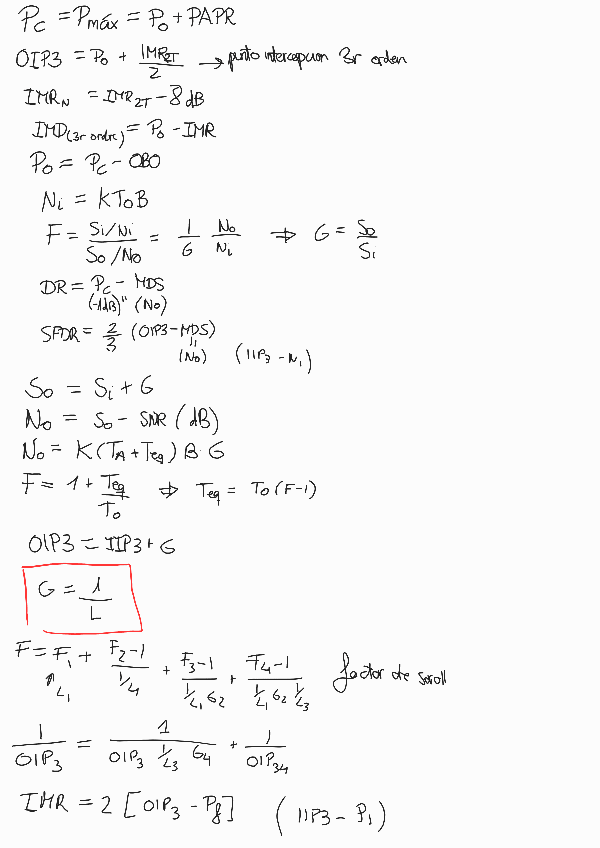 Pc = Pmáx = Po + PAPR
OIP3 = Po + IMR2T/2 → punto intercepcion 3r orden
IMRN = IMR2T - 8 dB
IMD(3r ordre) = Po - IMR
Po = Pc - OBO
Ni = KToB
F = (Si/Ni)/(So/No) = 1/G No/Ni ⇒ G = So/Si
DR = Pc - MDS
(-1dB) " (No)
SFDR = 2/3 (OIP3 - MDS)
(No) (IIP3 - Ni)
So = Si + G
No = So - SNR (dB)
No = K(TA + Teq) B · G
F = 1 + Teq/To ⇒ Teq = To (F-1)
OIP3 = IIP3 + G
G = 1/L
F = F1 + (F2-1)/(1/L1) + (F3-1)/(1/L1 G2) + (F4-1)/(1/L1 G2 1/L3) factor de soroll
↑L1
1/OIP3 = 1/(OIP3 1/L3 G4) + 1/OIP34
IMR = 2 [OIP3 - Pf] (IIP3 - Pi)